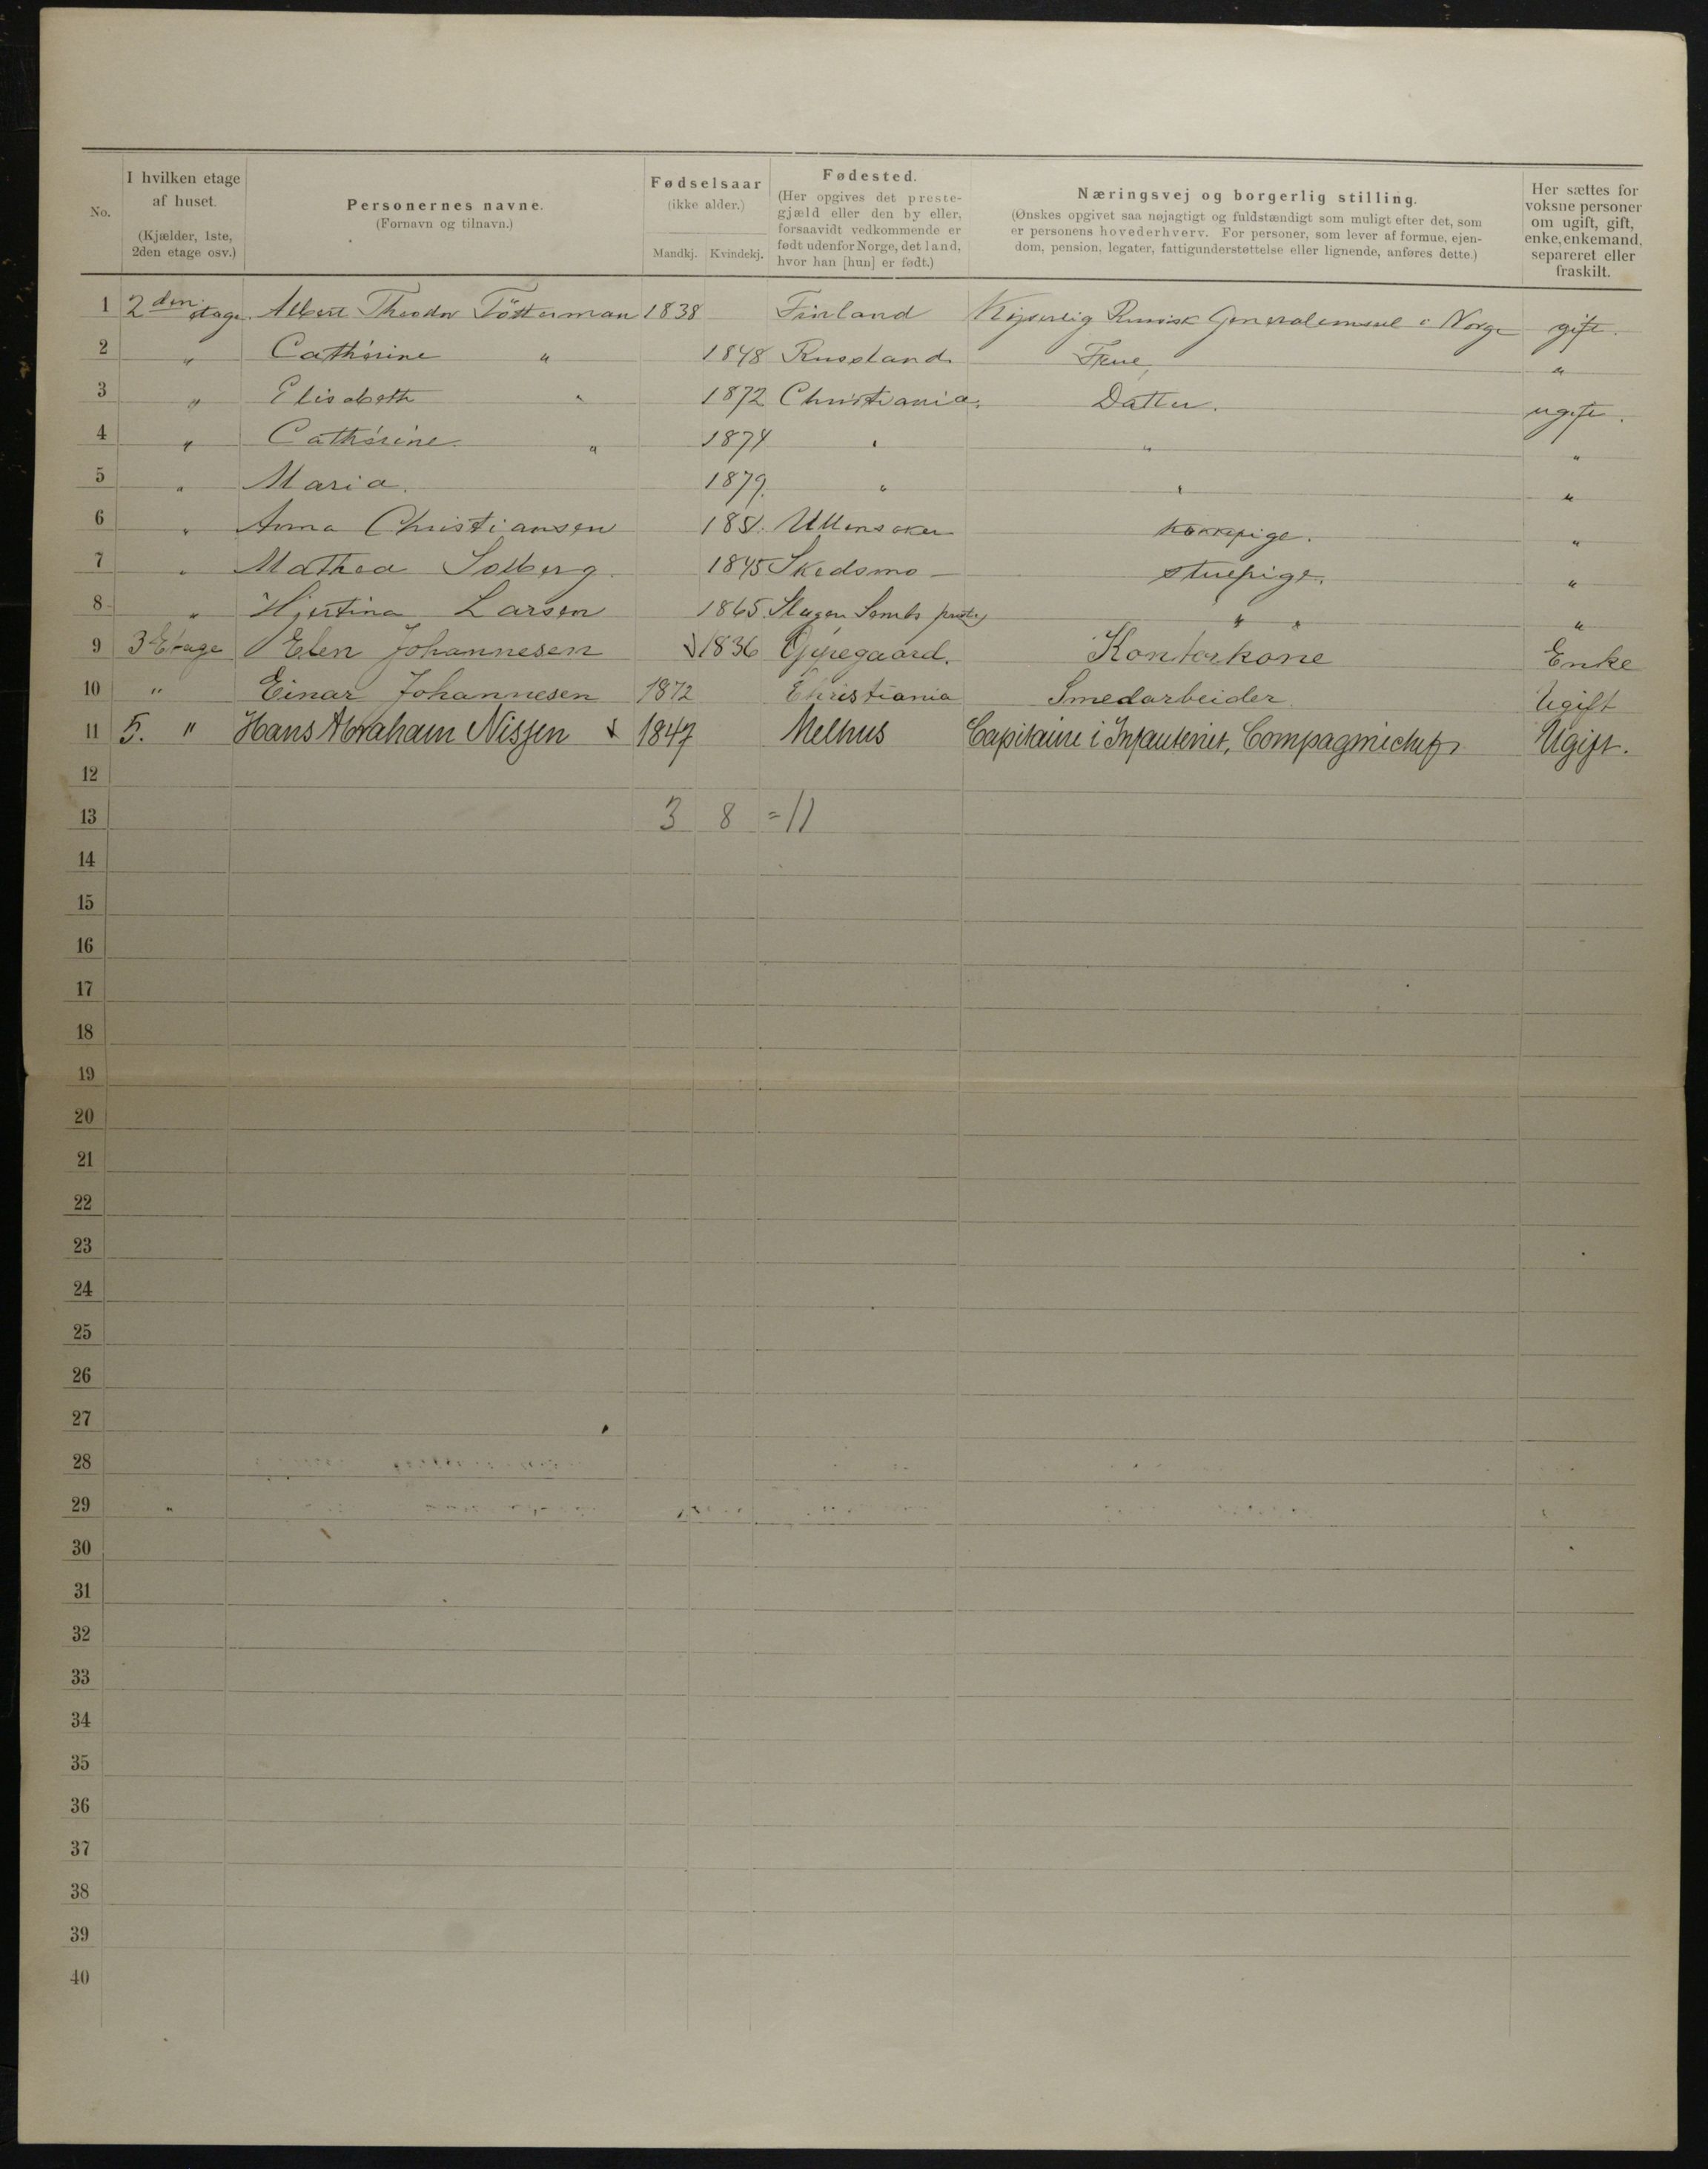 No.
I hvilken etage
af huset.
(Kjælder, 1ste,
2den etage osv.)
Personernes navne.
(Fornavn og tilnavn.)
Fødselsaar
(ikke alder.)
Mandkj. Kvindekj.
Fødested.
(Her opgives det preste-
gjæld eller den by eller,
forsaavidt vedkommende er
født udenfor Norge, det land,
hvor han [hun] er født.)
Næringsvej og borgerlig stilling.
(Ønskes opgivet saa nøjagtigt og fuldstændigt som muligt efter det, som
er personens hovederhverv. For personer, som lever af formue, ejen-
dom, pension, legater, fattigunderstøttelse eller lignende, anføres dette.)
Her sættes for
voksne personer
om ugift, gift,
enke, enkemand,
separeret eller
fraskilt.
1 2den etage. Albert Theodor Tötterman 1838 Finland Kejserlig Russisk Generalconsul i Norge gift.
2 " Cathérine " 1848 Russland. Frue, "
3 " Elisabeth " 1872 Christiania. Datter. ugift.
4 " Cathérine " 1874 " " "
5 " Maria. 1879. " " "
6 " Anna Christiansen 1851. Ullensaker Kokkepige. "
7 " Mathea Solberg. 1845 Skedsmo - Stuepige. "
8 " Hjertina Larsen 1865. Slagen Sembs " " "
9 3 Etage Elen Johannesen 1836 Oppegaard. Kontorkone Enke
10 " Einar Johannesen 1872 Christiania Smedarbeider Ugift
11 5. " Hans Abraham Nissen 1847 Melhus Capitaine i Infanteriet, Compagniechef Ugift.
12
13 3 8 = 11
14
15
16
17
18
19
20
21
22
23
24
25
26
27
28
29
30
31
32
33
34
35
36
37
38
39
40